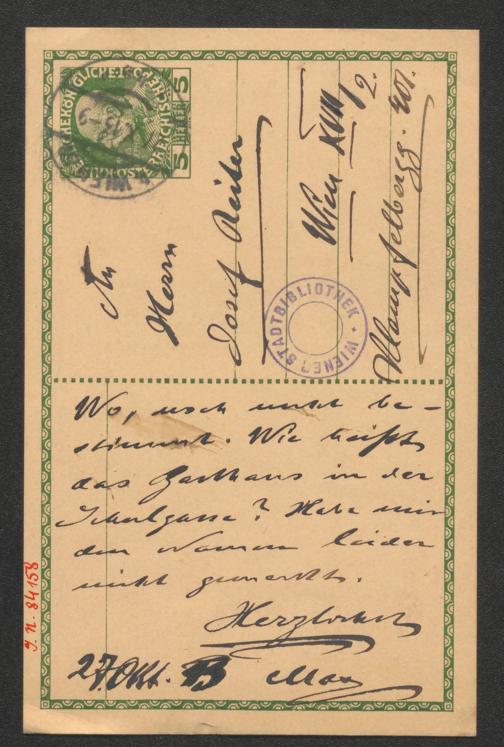 An
Herrn
Josef Reiter
Wien XVIII/2.
WIENER STADTBIBLIOTHEK
5 HELLER 5
Wo, noch nicht be-
stimmt. Wie heißt
das Gasthaus in der
Schulgasse? Habe mir
den Namen leider
nicht gemerkt.
Herzlichst
27 Okt. 13 Max
J. N. 84158